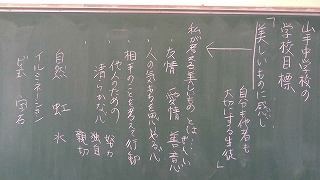 山手中学校の
学校目標
「美しいものに感じ
自分も他者も
大切にする生徒」
私が考える美しいものとは…
・友情 愛情 善意
・人の気もちを思いやる心
・相手のことを考えて行動
・他人のための 努力
清らかな心 独自
親切
自然 虹 水
イルミネーション
宝石